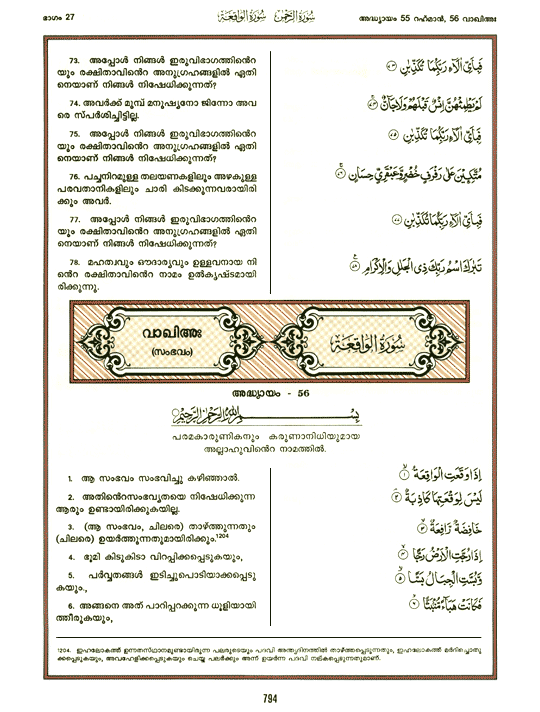 ഭാഗം 27
سُورَةُ الرَّحْمٰن سُورَةُ الوَاقِعَة
അദ്ധ്യായം 55 റഹ്മാൻ, 56 വാഖിഅഃ
73. അപ്പോൾ നിങ്ങൾ ഇരുവിഭാഗത്തിന്റെ
യും രക്ഷിതാവിന്റെ അനുഗ്രഹങ്ങളിൽ ഏതി
നെയാണ് നിങ്ങൾ നിഷേധിക്കുന്നത്?
فَبِأَيِّ آلَاءِ رَبِّكُمَا تُكَذِّبَانِ ٧٣
74. അവർക്ക് മുമ്പ് മനുഷ്യനോ ജിന്നോ അവ
രെ സ്പർശിച്ചിട്ടില്ല.
لَمْ يَطْمِثْهُنَّ إِنسٌ قَبْلَهُمْ وَلَا جَانٌّ ٧٤
75. അപ്പോൾ നിങ്ങൾ ഇരുവിഭാഗത്തിന്റെ
യും രക്ഷിതാവിന്റെ അനുഗ്രഹങ്ങളിൽ ഏതി
നെയാണ് നിങ്ങൾ നിഷേധിക്കുന്നത്?
فَبِأَيِّ آلَاءِ رَبِّكُمَا تُكَذِّبَانِ ٧٥
76. പച്ചനിറമുള്ള തലയണകളിലും അഴകുള്ള
പരവതാനികളിലും ചാരി കിടക്കുന്നവരായിരി
ക്കും അവർ.
مُتَّكِئِينَ عَلَىٰ رَفْرَفٍ خُضْرٍ وَعَبْقَرِيٍّ حِسَانٍ ٧٦
77. അപ്പോൾ നിങ്ങൾ ഇരുവിഭാഗത്തിന്റെ
യും രക്ഷിതാവിന്റെ അനുഗ്രഹങ്ങളിൽ ഏതി
നെയാണ് നിങ്ങൾ നിഷേധിക്കുന്നത്?
فَبِأَيِّ آلَاءِ رَبِّكُمَا تُكَذِّبَانِ ٧٧
78. മഹത്വവും ഔദാര്യവും ഉള്ളവനായ നി
ന്റെ രക്ഷിതാവിന്റെ നാമം ഉൽകൃഷ്ടമായി
രിക്കുന്നു.
تَبَارَكَ اسْمُ رَبِّكَ ذِي الْجَلَالِ وَالْإِكْرَامِ ٧٨
വാഖിഅഃ
(സംഭവം)
سُورَةُ الوَاقِعَة
അദ്ധ്യായം - 56
بِسْمِ اللَّهِ الرَّحْمَٰنِ الرَّحِيمِ
പരമകാരുണികനും കരുണാനിധിയുമായ
അല്ലാഹുവിന്റെ നാമത്തിൽ.
1. ആ സംഭവം സംഭവിച്ചു കഴിഞ്ഞാൽ.
إِذَا وَقَعَتِ الْوَاقِعَةُ ١
2. അതിന്റെസംഭവ്യതയെ നിഷേധിക്കുന്ന
ആരും ഉണ്ടായിരിക്കുകയില്ല.
لَيْسَ لِوَقْعَتِهَا كَاذِبَةٌ ٢
3. (ആ സംഭവം, ചിലരെ) താഴ്ത്തുന്നതും
(ചിലരെ) ഉയർത്തുന്നതുമായിരിക്കും.1204
خَافِضَةٌ رَّافِعَةٌ ٣
4. ഭൂമി കിടുകിടാ വിറപ്പിക്കപ്പെടുകയും,
إِذَا رُجَّتِ الْأَرْضُ رَجًّا ٤
5. പർവ്വതങ്ങൾ ഇടിച്ചുപൊടിയാക്കപ്പെടു
കയും.,
وَبُسَّتِ الْجِبَالُ بَسًّا ٥
6. അങ്ങനെ അത് പാറിപ്പറക്കുന്ന ധൂളിയായി
ത്തീരുകയും,
فَكَانَتْ هَبَاءً مُّنبَثًّا ٦
1204. ഇഹലോകത്ത് ഉന്നതസ്ഥാനമുണ്ടായിരുന്ന പലരുടെയും പദവി അന്ത്യദിനത്തിൽ താഴ്ത്തപ്പെടുന്നതും, ഇഹലോകത്ത് മർദിച്ചൊതു
ക്കപ്പെടുകയും, അവഹേളിക്കപ്പെടുകയും ചെയ്ത പലർക്കും അന്ന് ഉയർന്ന പദവി നല്കപ്പെടുന്നതുമാണ്.
794